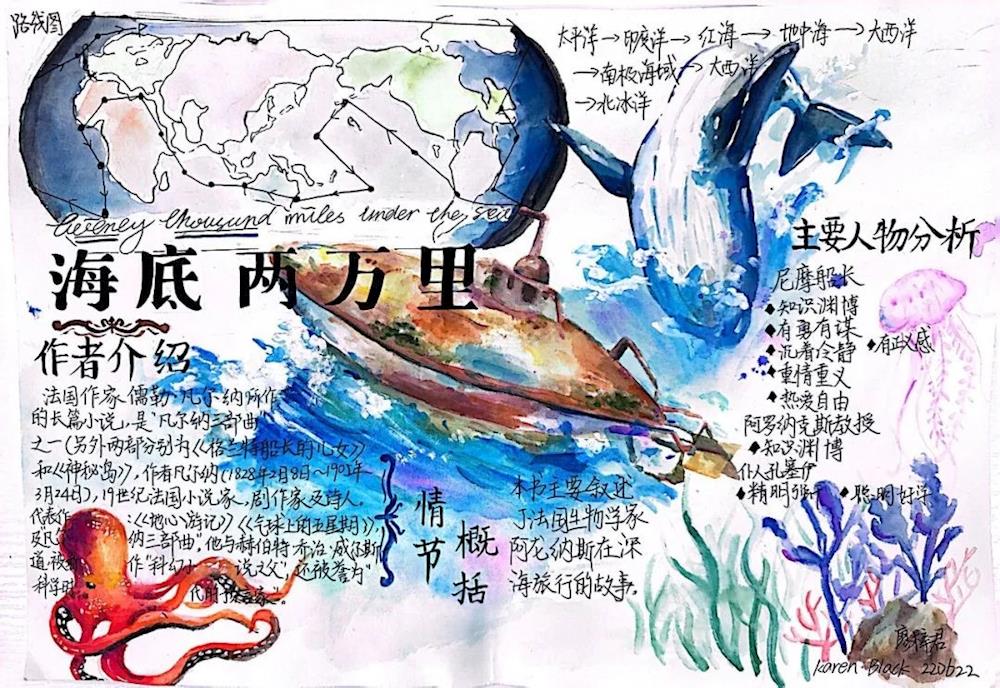 路线图
太平洋→印度洋→红海→地中海→大西洋
→南极海域→大西洋
→北冰洋
thousand miles under the sea
海底两万里
主要人物分析
尼摩船长
知识渊博
有勇有谋
沉着冷静
有正义感
重情重义
热爱自由
阿罗纳克斯教授
知识渊博
仆人孔塞伊
精明强干
聪明好学
作者介绍
法国作家儒勒·凡尔纳所作
的长篇小说,是"凡尔纳三部曲"
之一(另外两部分别为《格兰特船长的儿女》
和《神秘岛》,作者凡尔纳(1828年2月8日~1901年
3月24日),19世纪法国小说家,剧作家及诗人,
代表作:《地心游记》《气球上的五星期》,
及凡 纳三部曲",他与赫伯特·乔治·威尔斯
道被 作"科幻小说之父",还被誉为"
科学时 代的预言家"。
情节概括
本书主要叙述
了法国生物学家
阿龙纳斯在深
海旅行的故事。
Karen·Black 220622